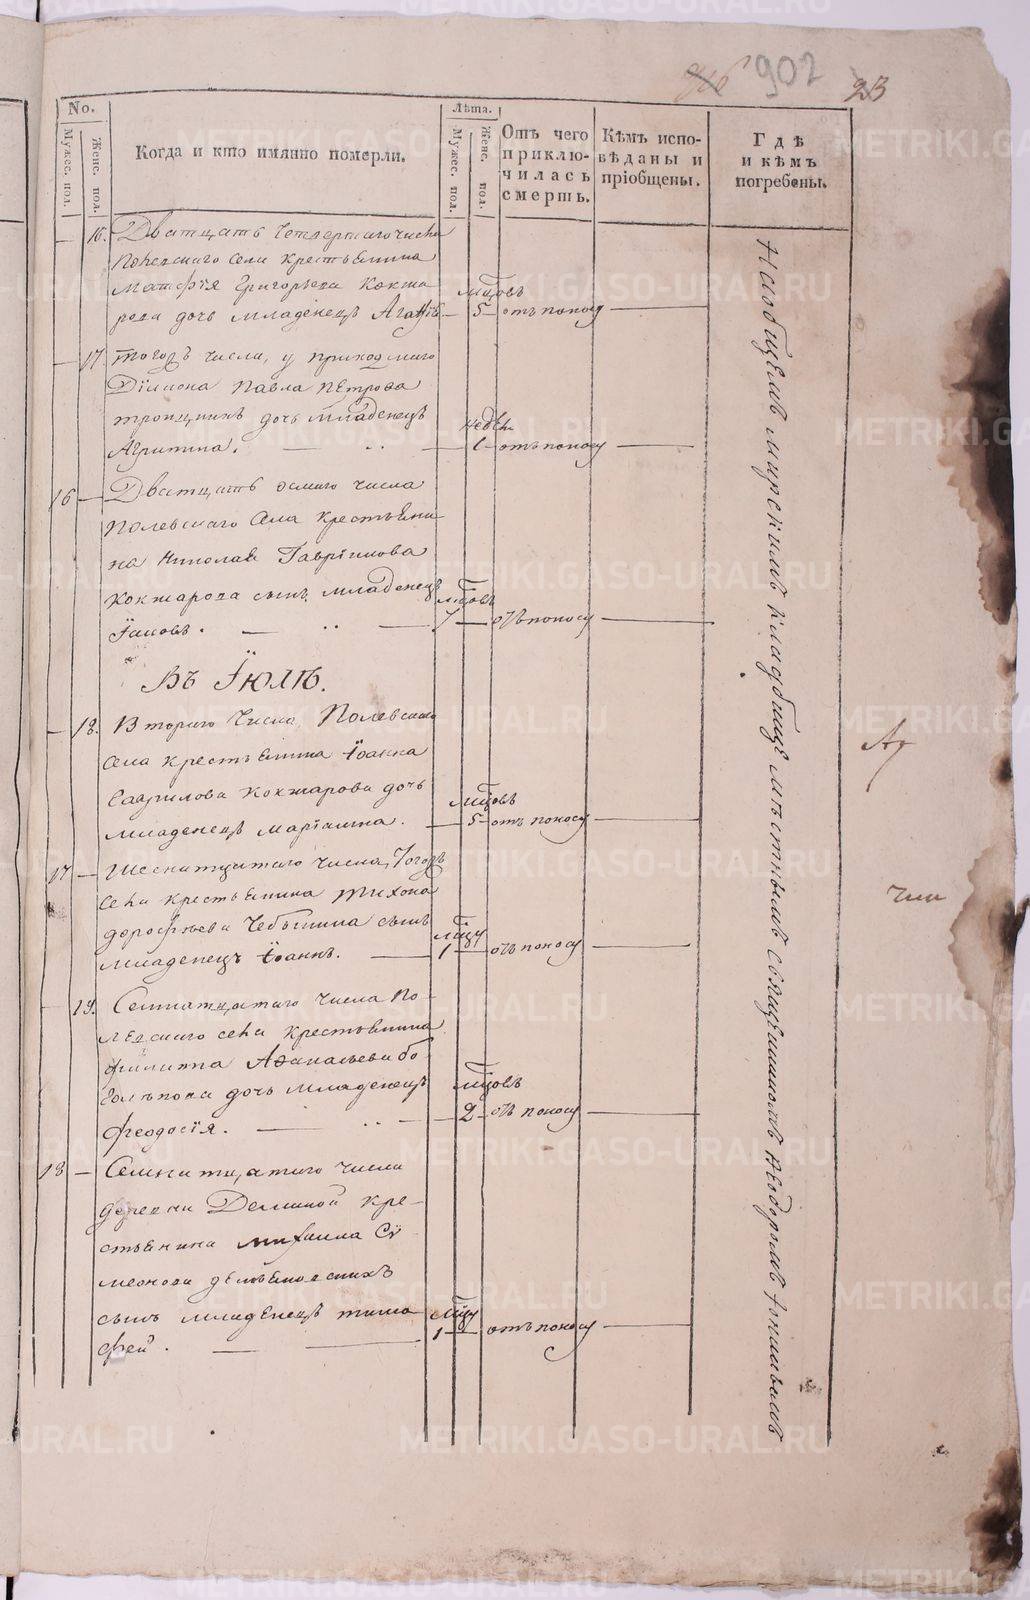 902
23
No.
Мужес. пол.
Женс. пол.
Когда и кто имянно померли.
Лѣта.
Мужес. пол.
Женс. пол.
Отъ чего приклю-
чилась смерть.
Кѣмъ испо-
вѣданы и
пріобщены.
Гдѣ
и кѣмъ
погребены.
16. Дватцать четвертаго числа
Полевскаго села крестьянина
Матфѣя Григорьева Кокша
рова дочь младенецъ Агафія мцовъ 5 отъ поносу
17. Тогожъ числа, у приходскаго
Діакона Павла Петрова
дочь младенецъ
Агрипина. недѣль 6 отъ поносу
16 Дватцать осмаго числа
Полевскаго села крестьяни
на Николая Гаврилова
Кокшарова сынъ младенецъ
Іаковъ. мцовъ 7 отъ поносу
Въ Іюлѣ.
18. Втораго числа, Полевскаго
села крестьянина Іоанна
Гаврилова Кокшарова дочь
младенецъ Маріамна. мцовъ 5 отъ поносу
17 Шеснатцатаго числа, Тогожъ
села крестьянина Тихона
Дорофѣева Чебыкина сынъ
младенецъ Іоаннъ. мцу 1 отъ поносу
19. Семнатцатаго числа По-
левскаго села крестьянина
Филиппа Афанасьева Бо
дочь младенецъ
Феодосія. мцовъ 2 отъ поносу
18 Семнатцатаго числа
деревни кре-
стьянина Михаила Си
меонова
сынъ младенецъ Тимо
фей. мцу 1 отъ поносу
На общемъ мирскомъ кладбищѣ мѣстнымъ священникомъ Ѳеодоромъ
METRIKI.GASO-URAL.RU